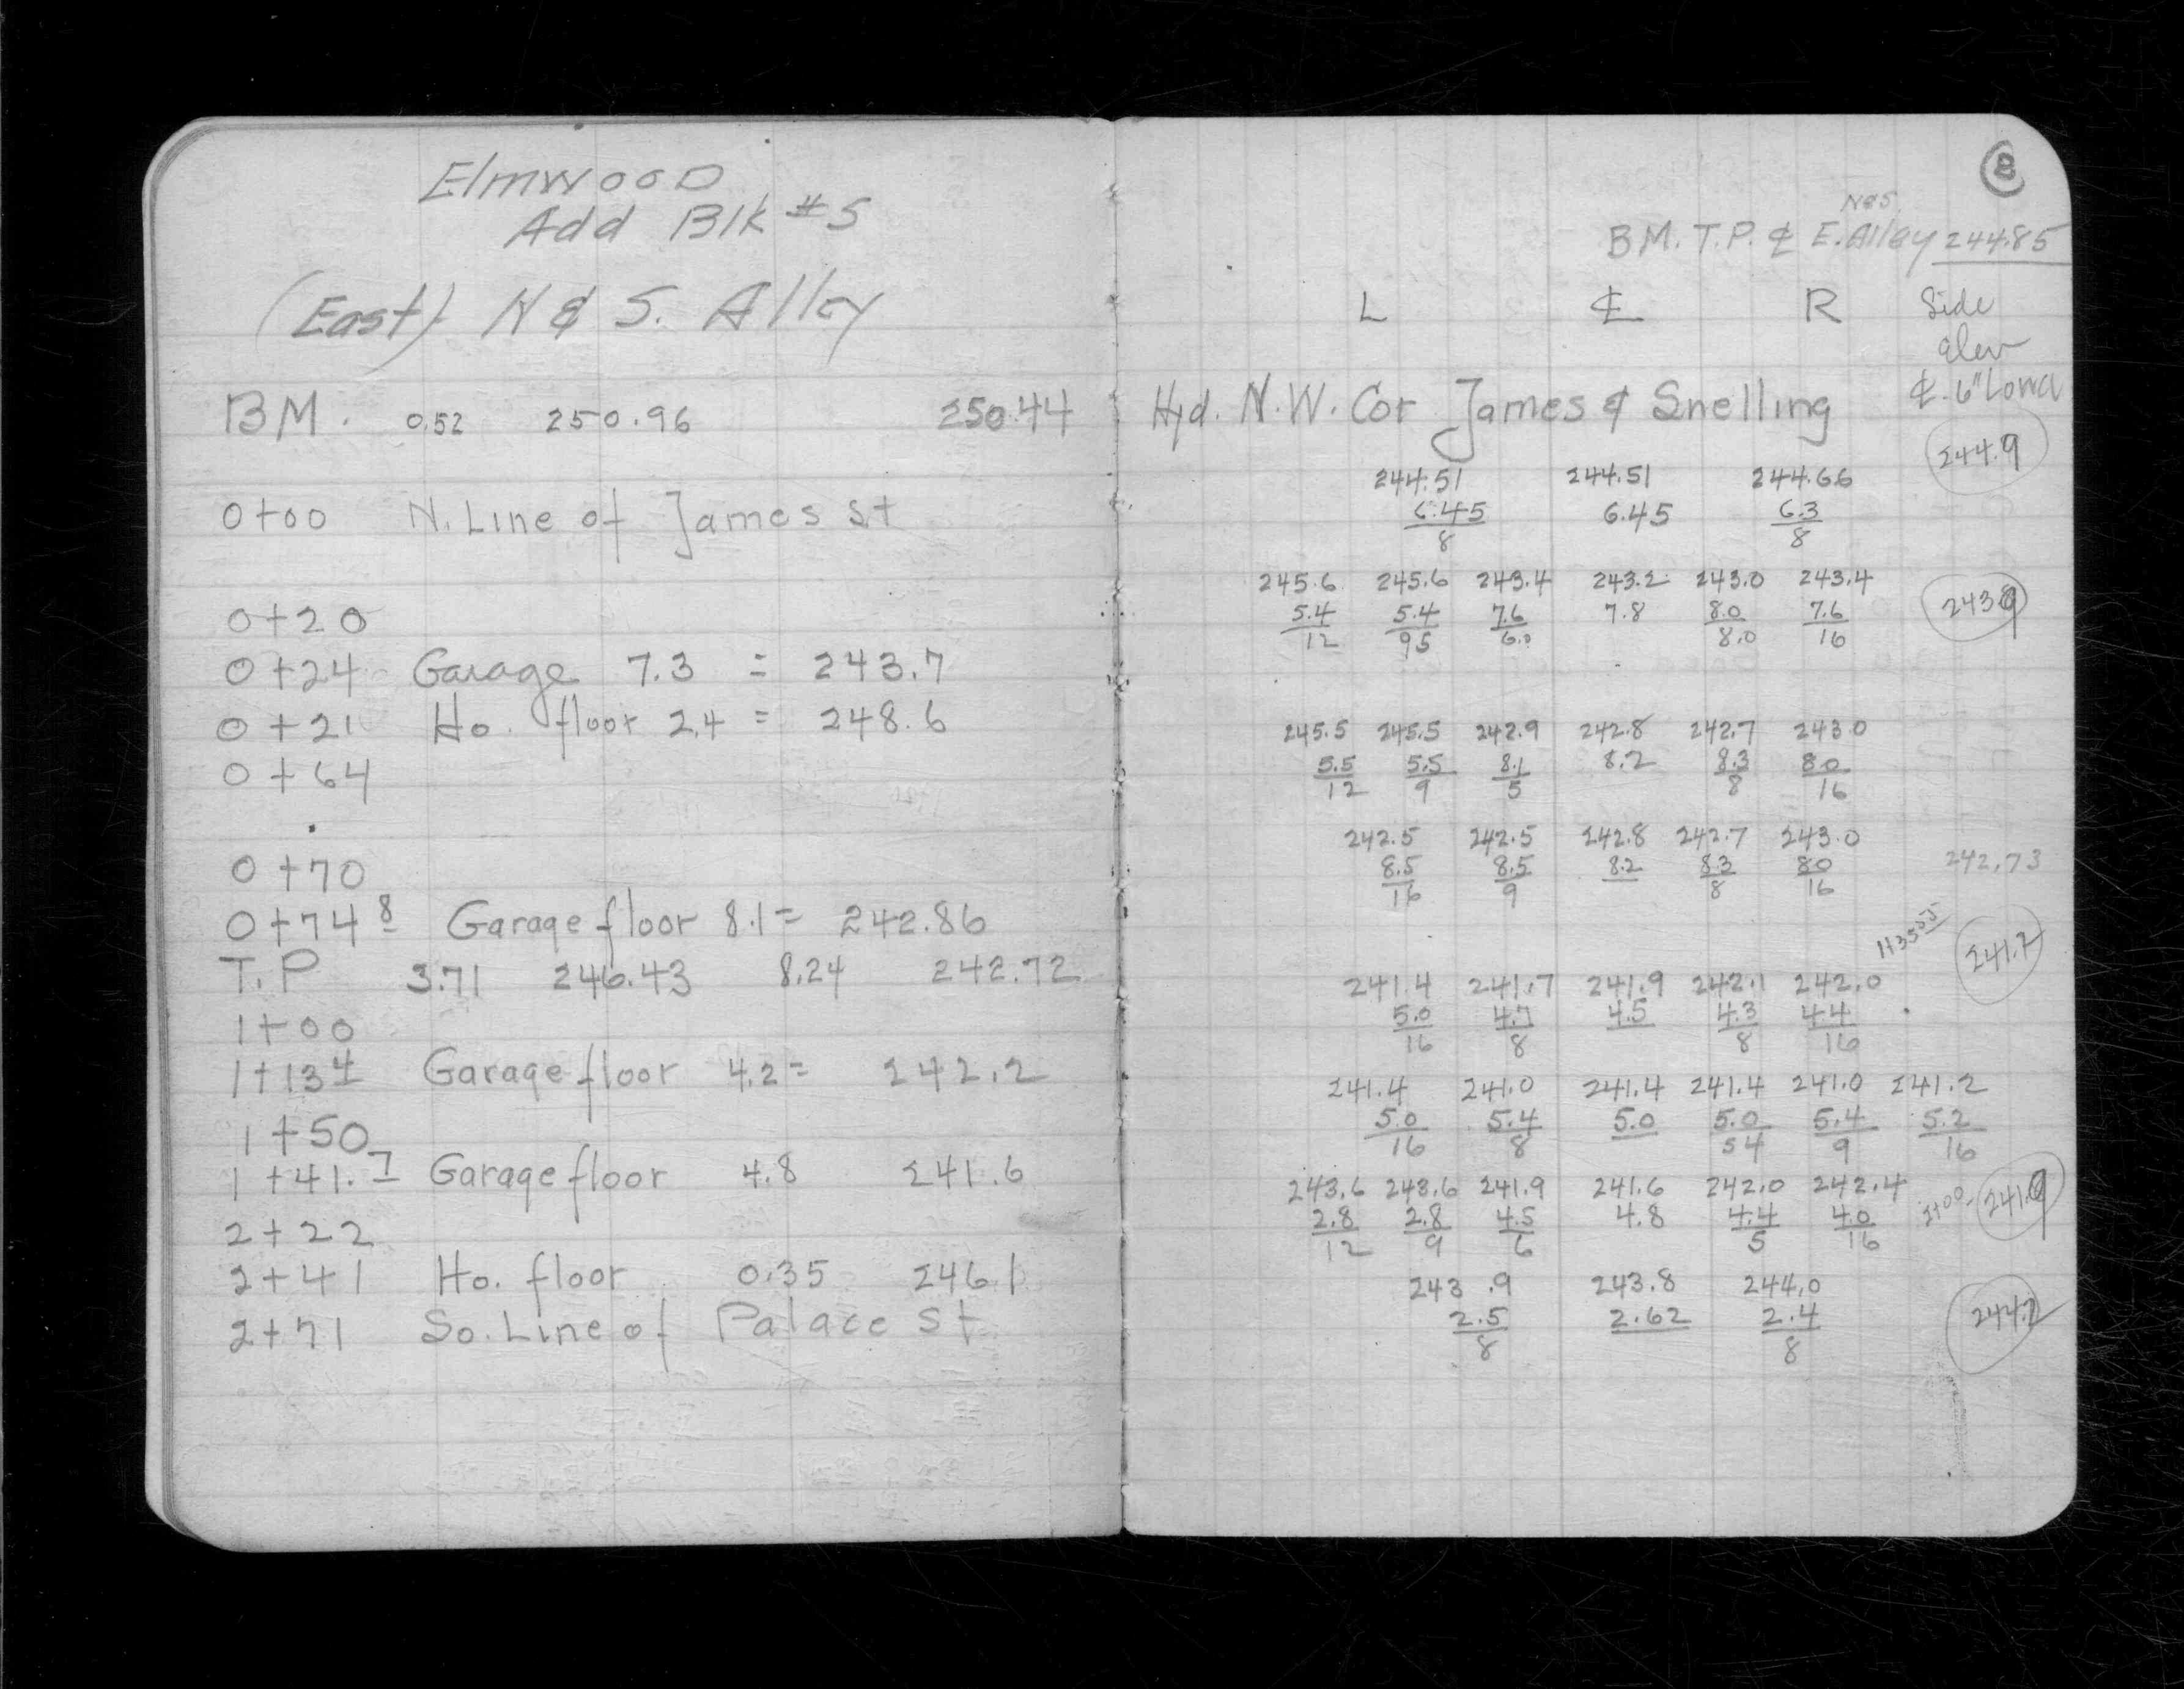 Elmwood
Add Blk #5
(East) N & S. Alley
BM. 0.52 250.96 250.44
0+00 N. Line of James St
0+20
0+24 Garage 7.3 = 243.7
0+21 Ho. floor 2.4 = 248.6
0+64
0+70
0+74 8 Garage floor 8.1 = 242.86
T.P 3.71 246.43 8.24 242.72
1+00
1+13 4 Garage floor 4.2 = 242.2
1+50
1+41.7 Garage floor 4.8 241.6
2+22
2+41 Ho. floor 0.35 246.1
2+71 So. Line of Palace St
8
N&S
B.M. T.P. ¢ E. Alley 244.85
L ¢ R Side
elev
¢. 6" Lower
Hyd. N.W. Cor James & Snelling
244.9
244.51 244.51 244.66
6.45 6.45 6.3
8 8
245.6 245.6 243.4 243.2 243.0 243.4 243.9
5.4 5.4 7.6 7.8 8.0 7.6
12 95 6.0 8.0 16
245.5 245.5 242.9 242.8 242.7 243.0
5.5 5.5 8.1 8.2 8.3 8.0
12 9 5 8 16
242.5 242.5 242.8 242.7 243.0
8.5 8.5 8.2 8.3 80 242.73
16 9 8 16
241.7
241.4 241.7 241.9 242.1 242.0
5.0 4.7 4.5 4.3 44
16 8 8 16
241.4 241.0 241.4 241.4 241.0 241.2
5.0 5.4 5.0 5.0 5.4 5.2
16 8 54 9 16
243.6 243.6 241.9 241.6 242.0 242.4
2.8 2.8 4.5 4.8 4.4 4.0 2+00- 241.9
12 9 6 5 16
243.9 243.8 244.0
2.5 2.62 2.4 244.2
8 8